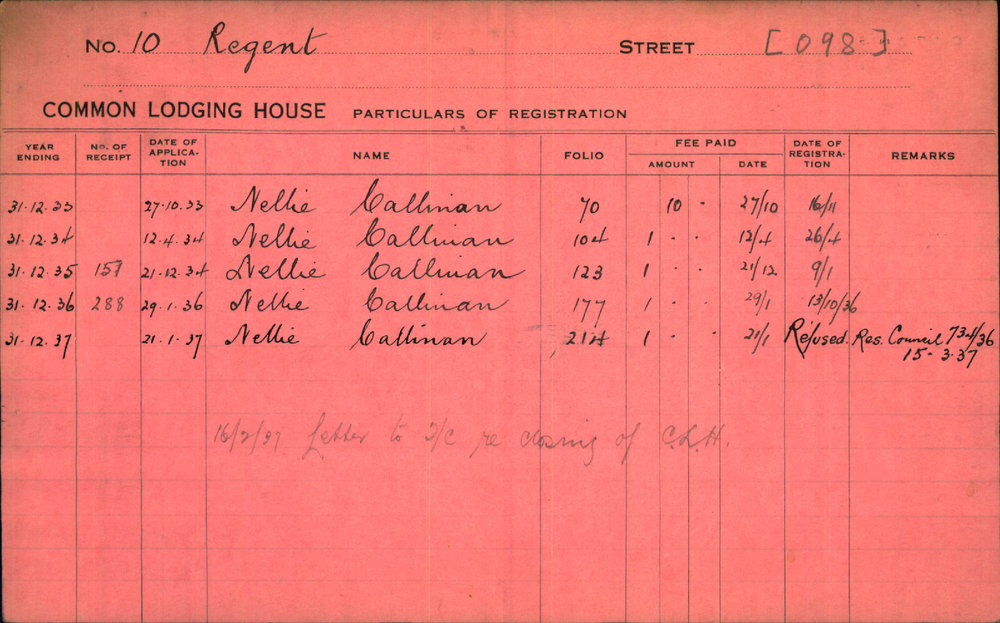 No. 10 Regent STREET [098]
COMMON LODGING HOUSE PARTICULARS OF REGISTRATION
YEAR ENDING No. OF RECEIPT DATE OF APPLICA-TION NAME FOLIO FEE PAID AMOUNT DATE DATE OF REGISTRA-TION REMARKS
31.12.33 27.10.33 Nellie Callinan 70 10 - 27/10 16/11
31.12.34 12.4.34 Nellie Callinan 104 1 - - 12/4 26/4
31.12.35 157 21.12.34 Nellie Callinan 123 1 - - 21/12 9/1
31.12.36 288 29.1.36 Nellie Callinan 177 1 - - 29/1 13/10/36
31.12.37 21.1.37 Nellie Callinan 214 1 - - 21/1 Refused. Res. Council 734/36
15.3.37
16/2/37 Letter to T/C re closing of C.L.H.